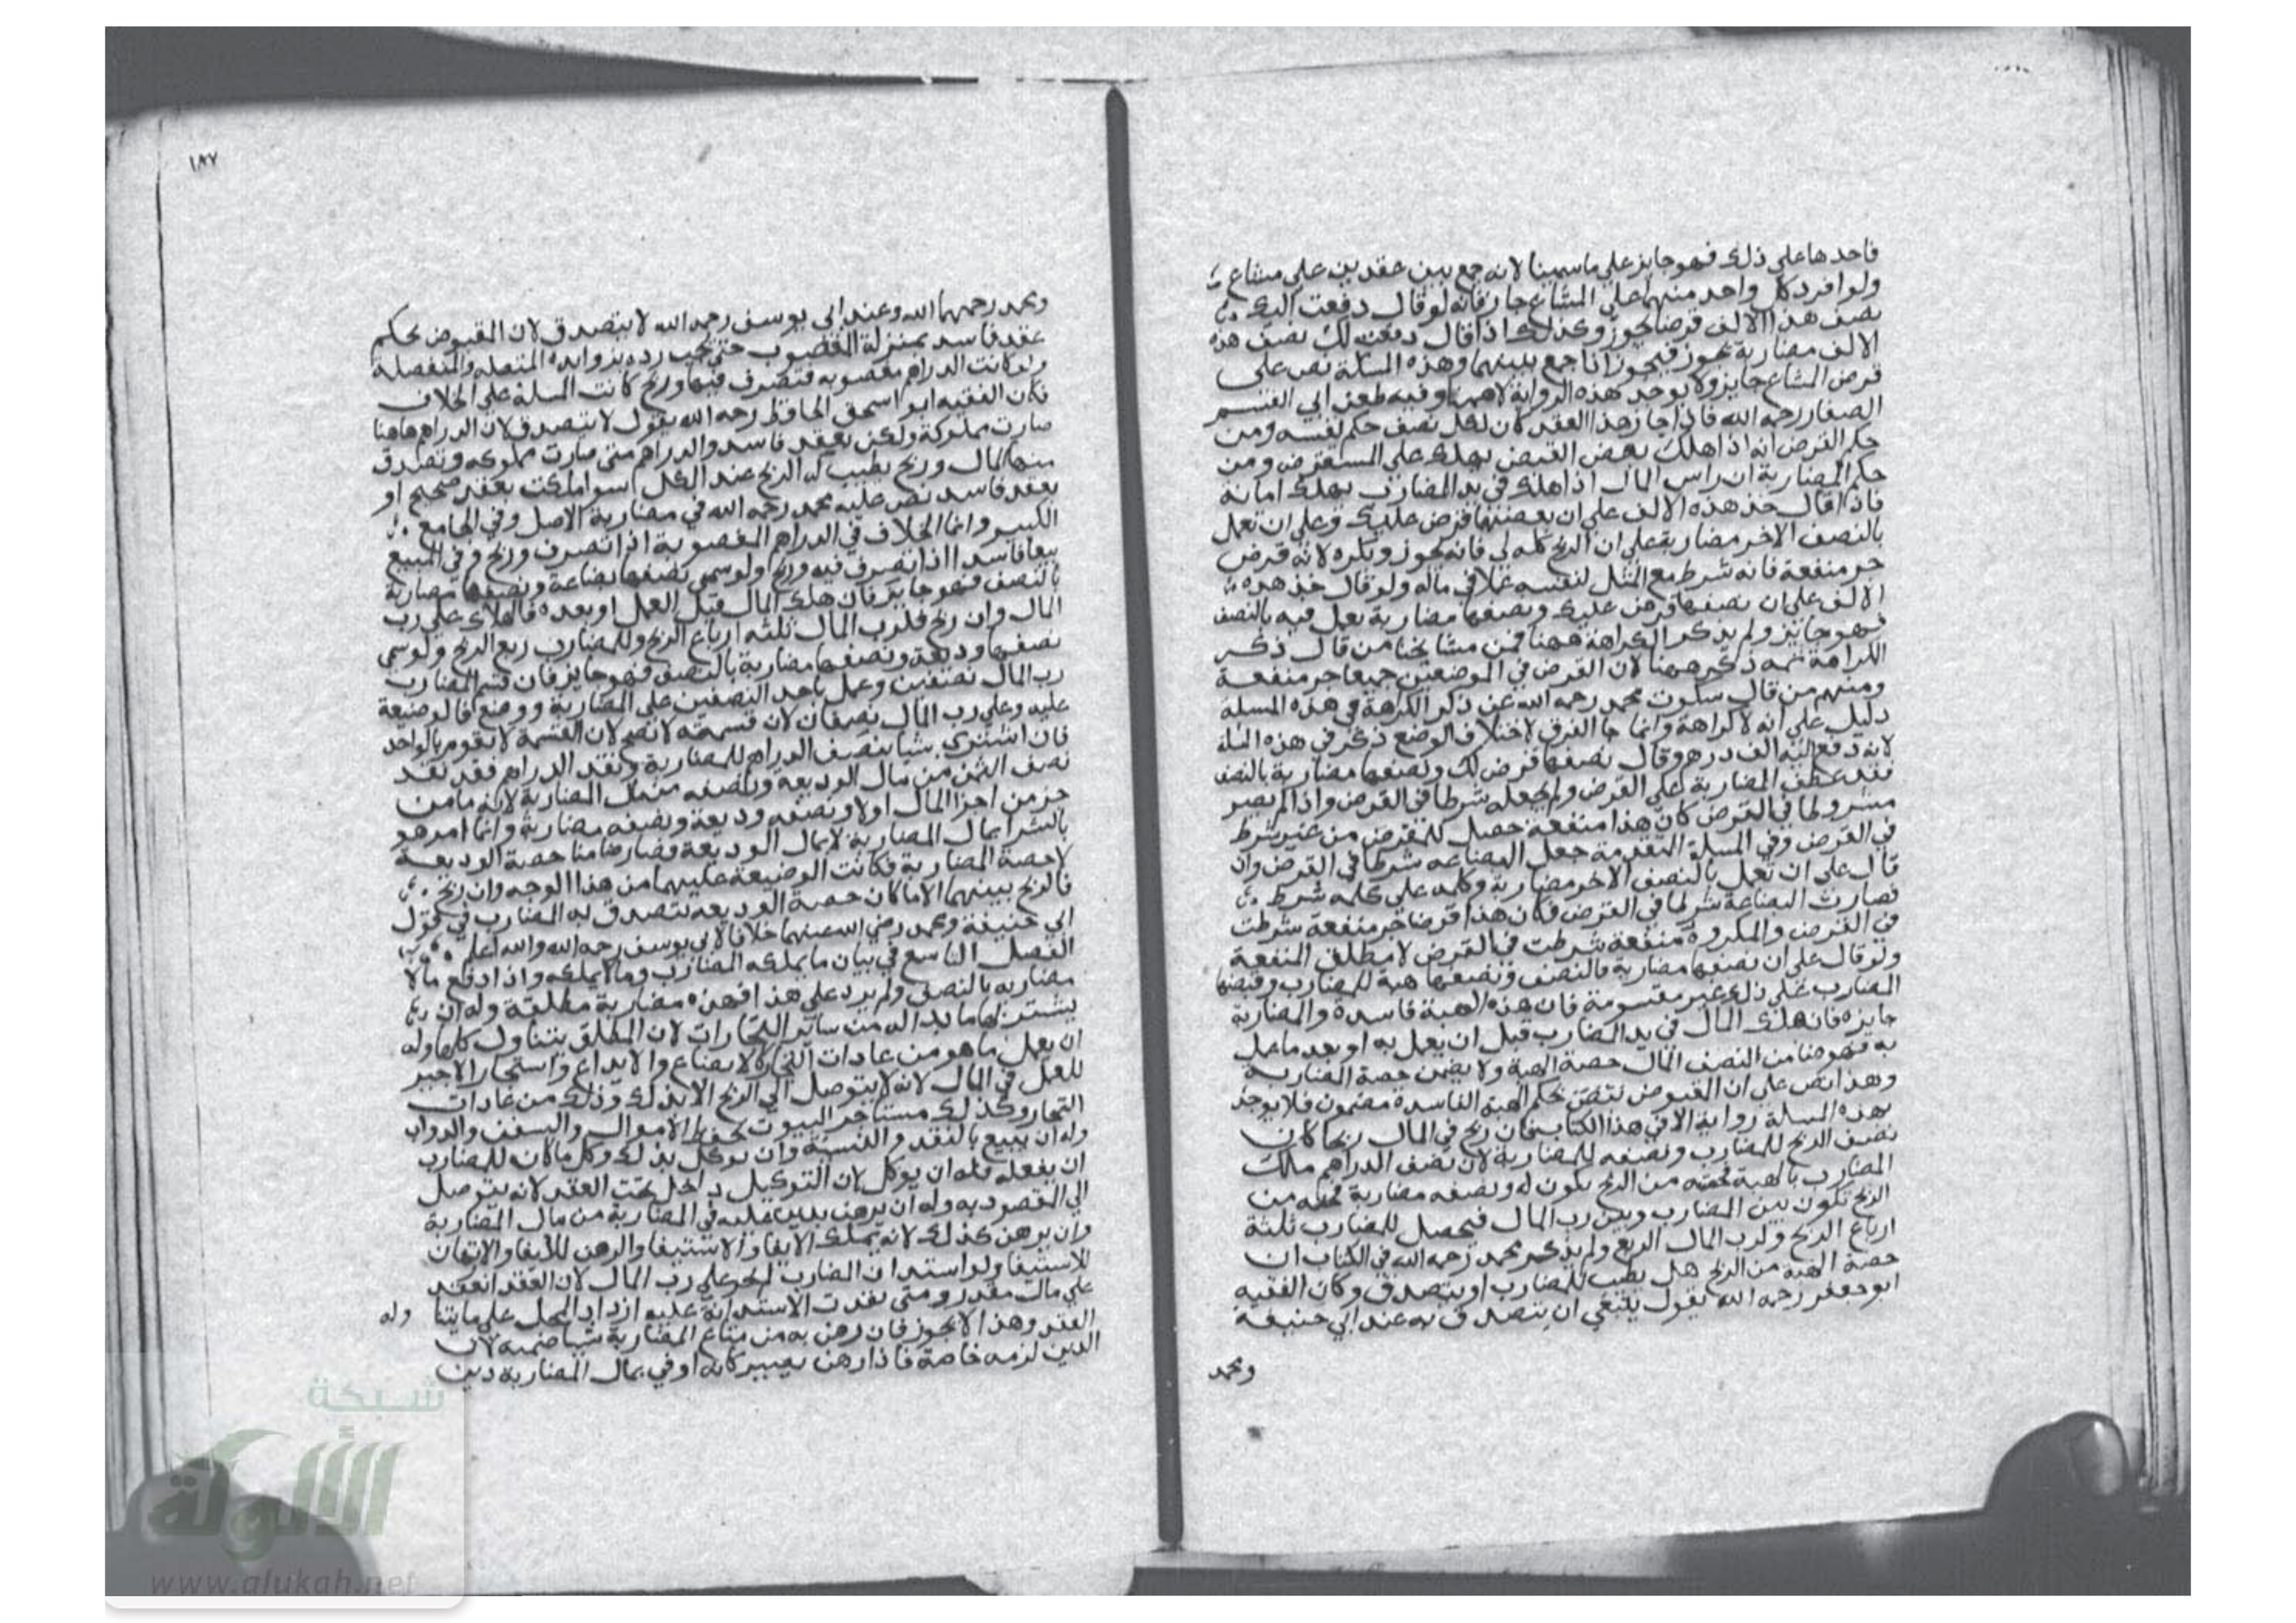 فاخذها على ذلك فهو جايز على ما سمينا لانه جمع بين عقدين على مشاع
ولو افرد كل واحد منهما على المشاع جاز فانه لو قال دفعت اليك
نصف هذا الالف قرضا يجوز وكذلك اذا قال دفعت لك نصف هذه
الالف مضاربة يجوز فيجوز اذا جمع بينهما وهذه المسلة نص على
قرض المشاع جايز ولا يوجد هذه الرواية الا ههنا وفيه طعن ابي القسم
الصفار رحمه الله فاذا جاز هذا العقد كان لكل نصف حكم نفسه ومن
حكم القرض انه اذا هلك بعض القبض يهلك على المستقرض ومن
حكم المضاربة ان راس المال اذا هلك في يد المضارب يهلك امانة
فاذا قال خذ هذه الالف على ان نصفها قرض عليك وعلى ان تعمل
بالنصف الاخر مضاربة على ان الربح كله لي فانه يجوز ويكره لانه قرض
جر منفعة فانه شرط مع المثل لنفسه عملا في ماله ولو قال خذ هذه
الالف على ان نصفها قرض عليك ونصفها مضاربة يعمل فيه بالنصف
فهو جائز ولم يذكر الكراهة ههنا فمن مشايخنا من قال ذكر
الكراهة ثمه ذكر ههنا لان القرض في الموضعين جميعا جر منفعة
ومنهم من قال سكوت محمد رحمه الله عن ذكر الكرهة في هذه المسلة
دليل على انه لا كراهة وانما جا الفرق لاختلاف الوضع ذكر في هذه المسلة
لانه دفع اليه الف درهم وقال نصفها قرض لك ونصفها مضاربة بالنصف
فقد عطف المضاربة على القرض ولم يجعله شرطا في القرض واذا لم يصر
مشروطا في القرض كان هذا منفعة حصل للمقرض من غير شرط
في القرض وفي المسلة المتقدمة جعل البضاعة شرطا في القرض وان
قال على ان تعمل بالنصف الاخر مضاربة وكلمه على كلمه شرط
فصارت البضاعة شرطا في القرض فكان هذا قرضا جر منفعة شرطت
في القرض والمكروه منفعة شرطت في القرض لا مطلق المنفعة
ولو قال على ان نصفها مضاربة بالنصف ونصفها هبة للمضارب وقبضها
المضارب على ذلك غير مقسومة فان هذه الهبة فاسدة والمضاربة
جايزه فان هلك المال في يد المضارب قبل ان يعمل به او بعد ما عمل
به فهو ضامن النصف المال حصة الهبة ولا يضمن حصة المضاربة
وهذا نص على ان المقبوض بحكم الهبة الفاسدة مضمون فلا يوجد
بهذه المسلة رواية الا في هذا الكتاب فان ربح في المال ربحا كان
نصف الربح للمضارب ونصفه للمضاربة لان نصف الدراهم ملك
المضارب بالهبة من الربح يكون له ونصفه مضاربة من
الربح تكون بين المضارب وبين رب المال فيحصل للمضارب ثلثة
ارباع الربح ولرب المال الربع ولم يذكر محمد رحمه الله في الكتاب ان
حصة الهبة من الربح هل يطيب للمضارب او يتصدق وكان الفقيه
ابو جعفر رحمه الله يقول ينبغي ان يتصدق به عند ابي حنيفة
ومحمد
١٨٧
ومحمد رحمهما الله وعند ابي يوسف رحمه الله لا يتصدق لان المقبوض بحكم
عقد فاسد بمنزلة المغصوب حتى يجب رده بزوايده المتصلة والمنفصلة
ولو كانت الدراهم مغصوبه فتصرف فيها وربح كانت المسلة على الخلاف
فكان الفقيه ابو اسحق الحافظ رحمه الله يقول لا يتصدق لان الدراهم هاهنا
صارت مملوكة ولكن بعقد فاسد والدراهم متى صارت مملوكه وتصدق
منها المال وربح يطيب له الربح عند الكل سوا ملكت بعقد صحيح او
بعقد فاسد نص عليه محمد رحمه الله في مضاربة الاصل وفي الجامع
الكبير وانما الخلاف في الدراهم المغصوبة اذا تصرف وربح وفي المبيع
بيعا فاسدا اذا تصرف فيه وربح ولو سمى نصفها بضاعة ونصفها مضاربة
بالنصف فهو جايز فان هلك المال قبل العمل او بعده فالهلاك على رب
المال وان ربح فلرب المال ثلثه ارباع الربح وللمضارب ربع الربح ولو سمى
نصفها وديعة ونصفها مضاربة بالنصف فهو جايز فان قسم المضارب
رب المال نصفين وعمل باحد النصفين على المضاربة ووضع فالوضيعة
عليه وعلى رب المال نصفان لان قسمته لا تصح لان القسمة لا تقوم بالواحد
فان اشترى شيا بنصف الدراهم للمضاربة ونقد الدراهم فقد نقد
نصف الثمن من مال الوديعة ونصفه من مال المضاربة لانه ما من
جز من اجزا المال اولا ونصفه وديعة ونصفه مضاربة وانما امر هو
بالشرا بمال المضاربة لا بمال الوديعة فصار ضامنا حصة الوديعة
لا حصة المضاربة فكانت الوضيعة عليهما من هذا الوجه وان ربح
فالربح بينهما الا ما كان حصة الوديعه يتصدق به المضارب في قول
ابي حنيفة ومحمد رضي الله عنهما خلافا لابي يوسف رحمه الله والله اعلم
الفصل التاسع في بيان ما يملكه المضارب وما لا يملكه واذا دفع مالا
مضاربه بالنصف ولم يزد على هذا فهذه مضاربة مطلقة وله ان
يشتري بها ما بدا له من ساير التجارات لان المطلق يتناول كلها وله
ان يعمل ما هو من عادات التجارة كالابضاع والايداع واستيجار الاجير
للعمل في المال لانه لا يتوصل الى الربح الا بذلك وذلك من عادات
التجار وكذلك مستاجر البيوت لحفظ الاموال والسفن والدواب
وله ان يبيع بالنقد والنسية وان يوكل بذلك وكل ما كان للمضارب
ان يفعله فله ان يوكل لان التوكيل داخل تحت العقد لانه يتوصل
الى المقصود به وله ان يرهن بدين عليه في المضاربة من مال المضاربة
وان يرهن كذلك لانه يملك الايفا والاستيفا والرهن للايفا والارتهان
للاستيفا ولو استدان المضارب لم يجز على رب المال لان العقد انعقد
على مال مقدر ومتى نفذت الاستدانة عليه ازداد المحل على ما يتنا وله
العقد وهذا لا يجوز فان رهن به من متاع المضاربة شيا ضمنه لان
الدين لزمه خاصة فاذا رهن يصير كانه اوفى بمال المضاربة دين
شبكة
الألوكة
www.alukah.net